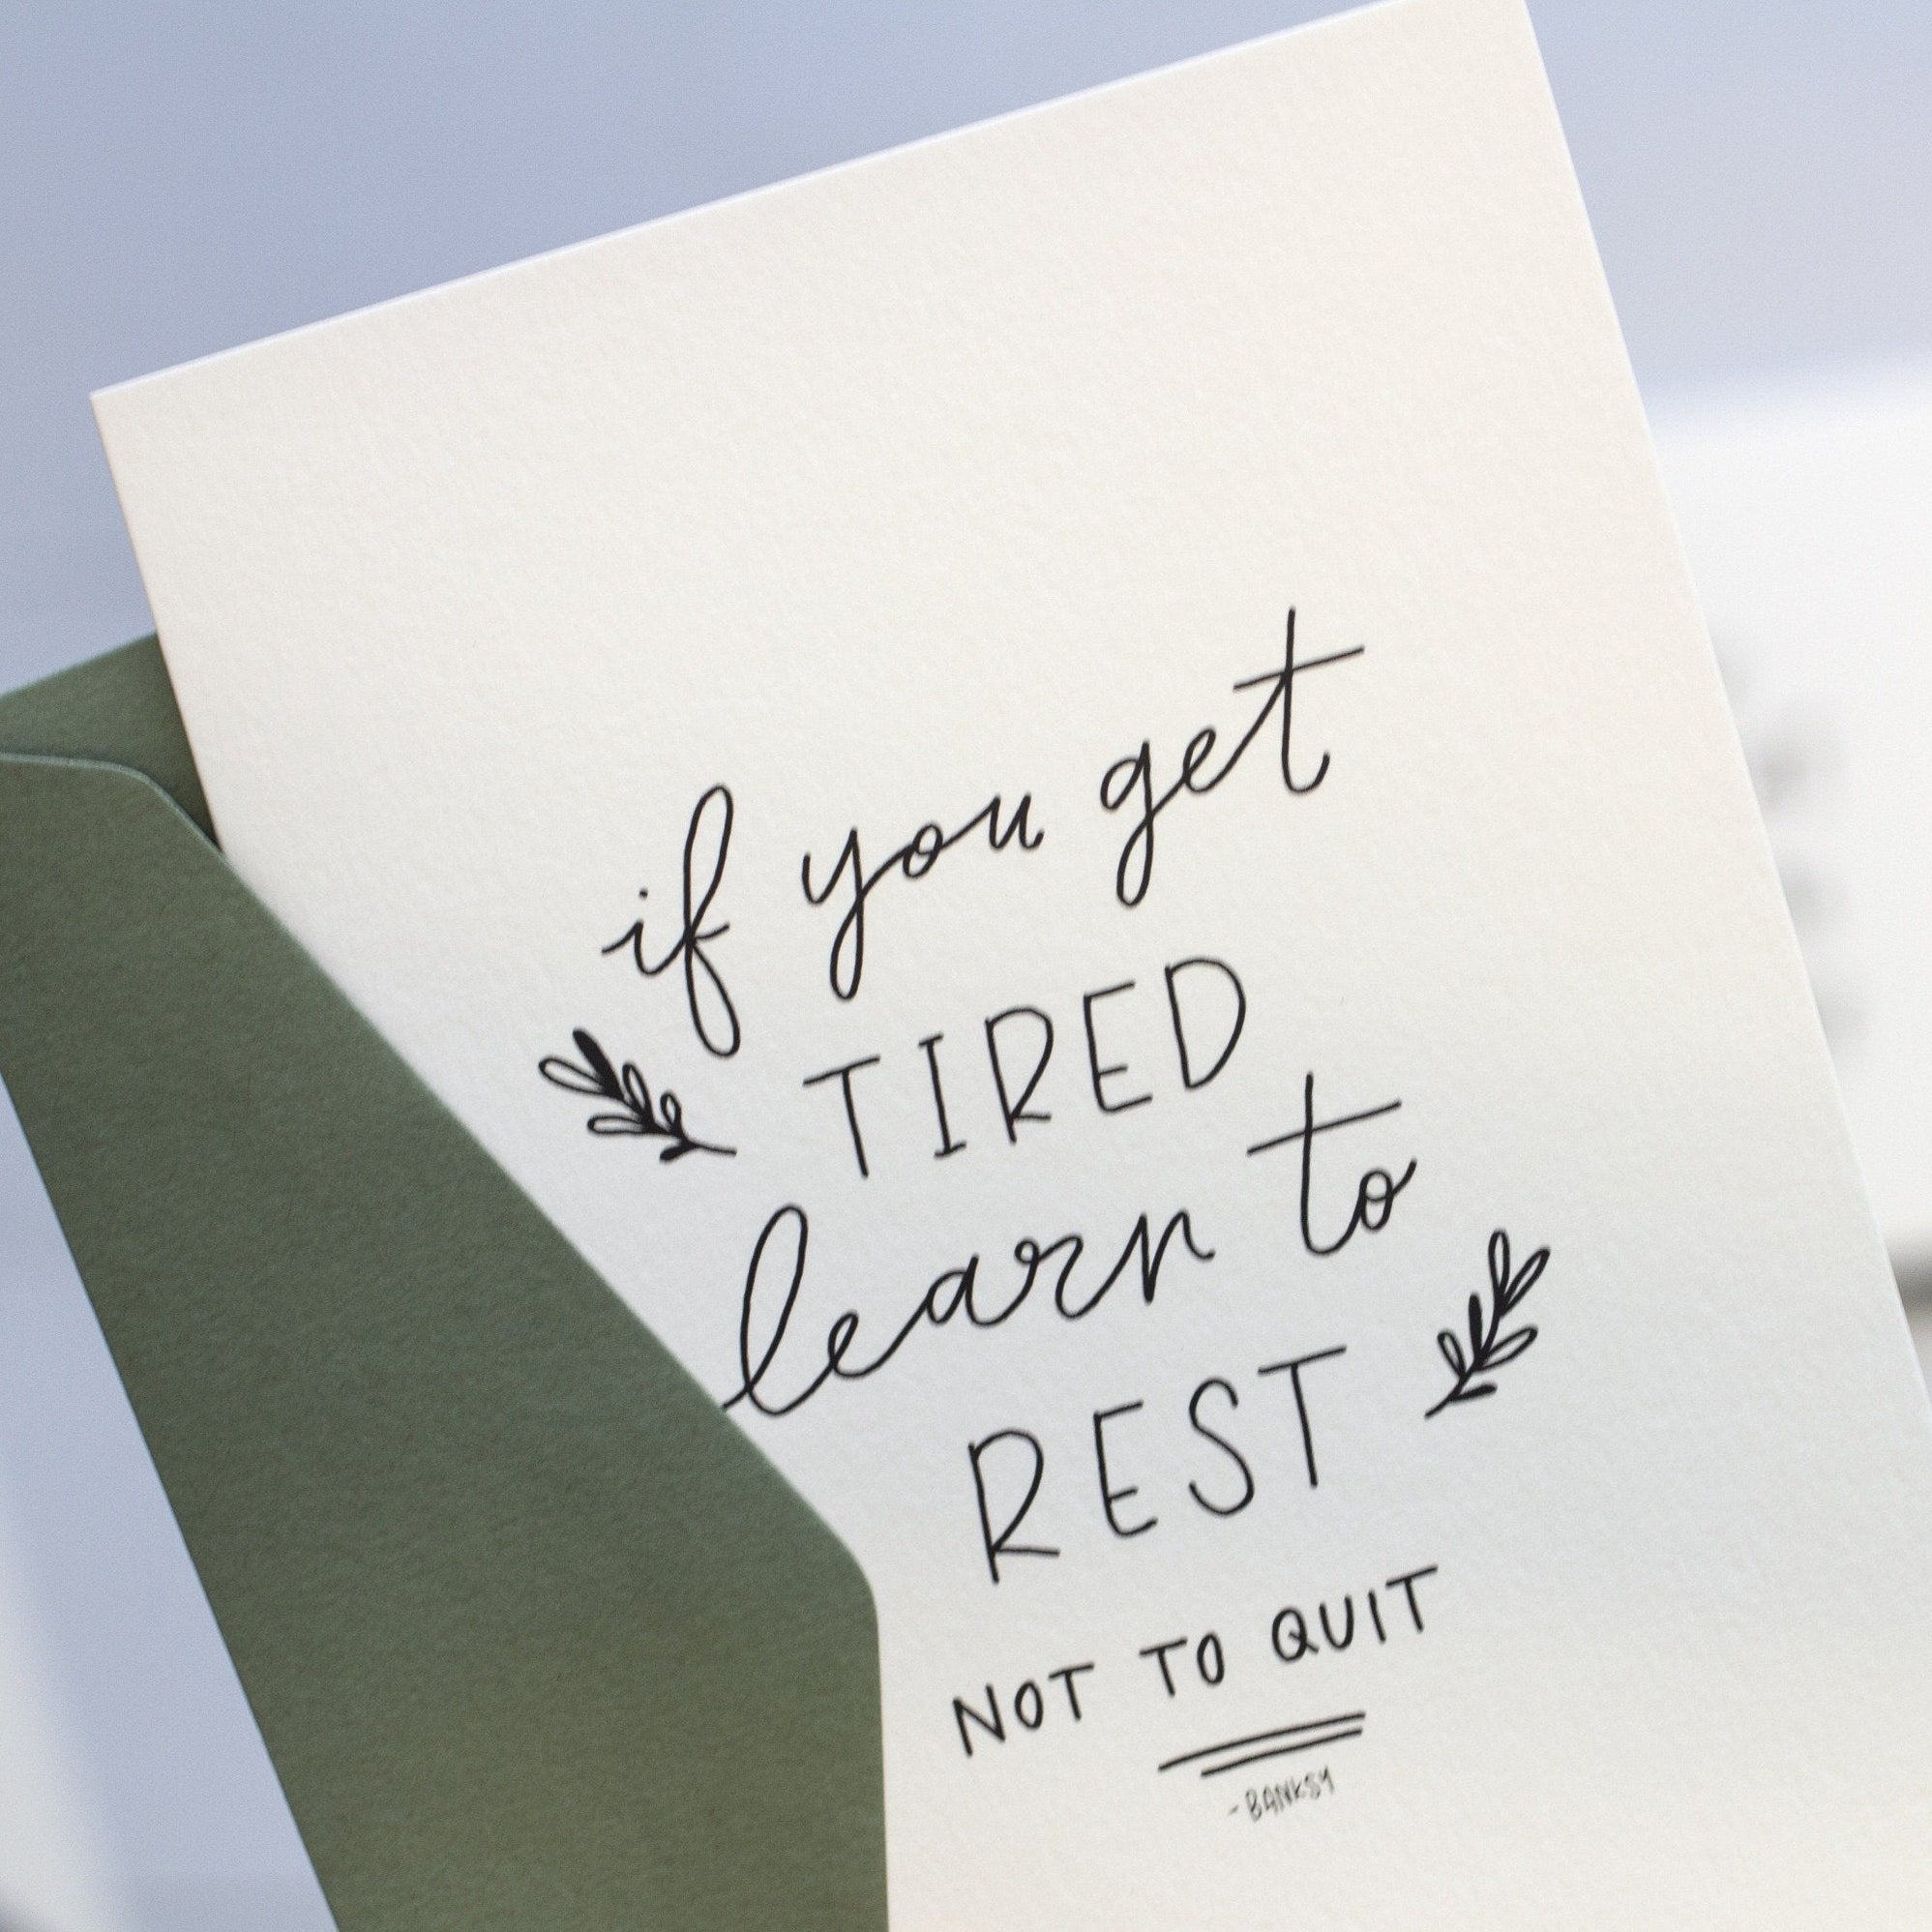 if you get
TIRED
learn to
REST
NOT TO QUIT
-BANKSY